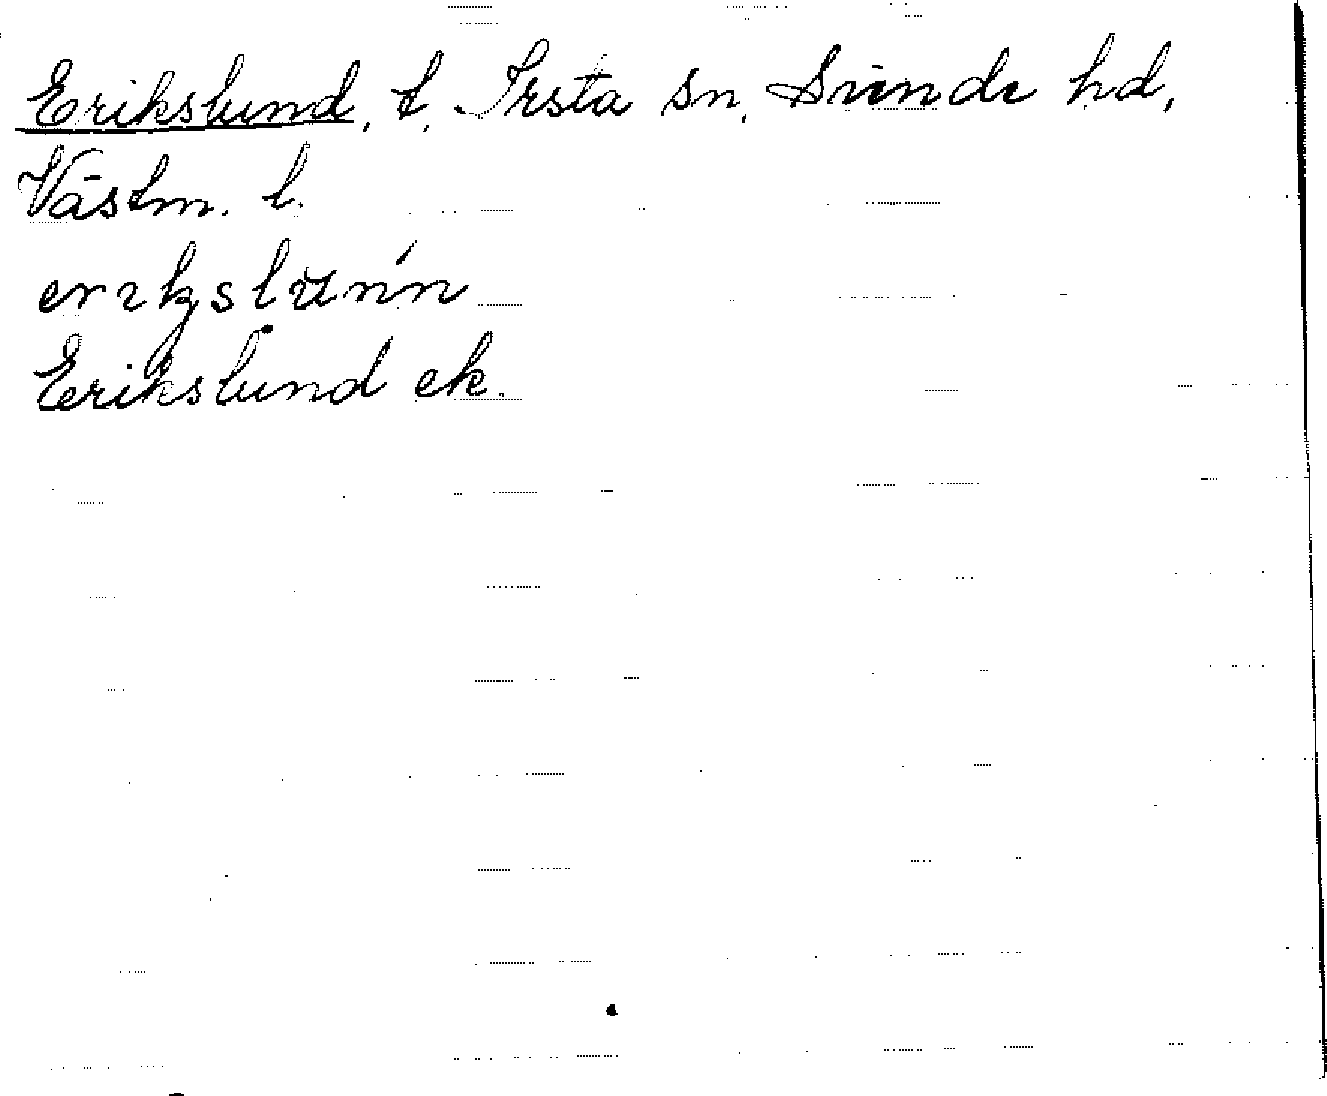 Erikslund, t. Irsta sn, Siende hd,
Västm. l.
Erikslund ek.